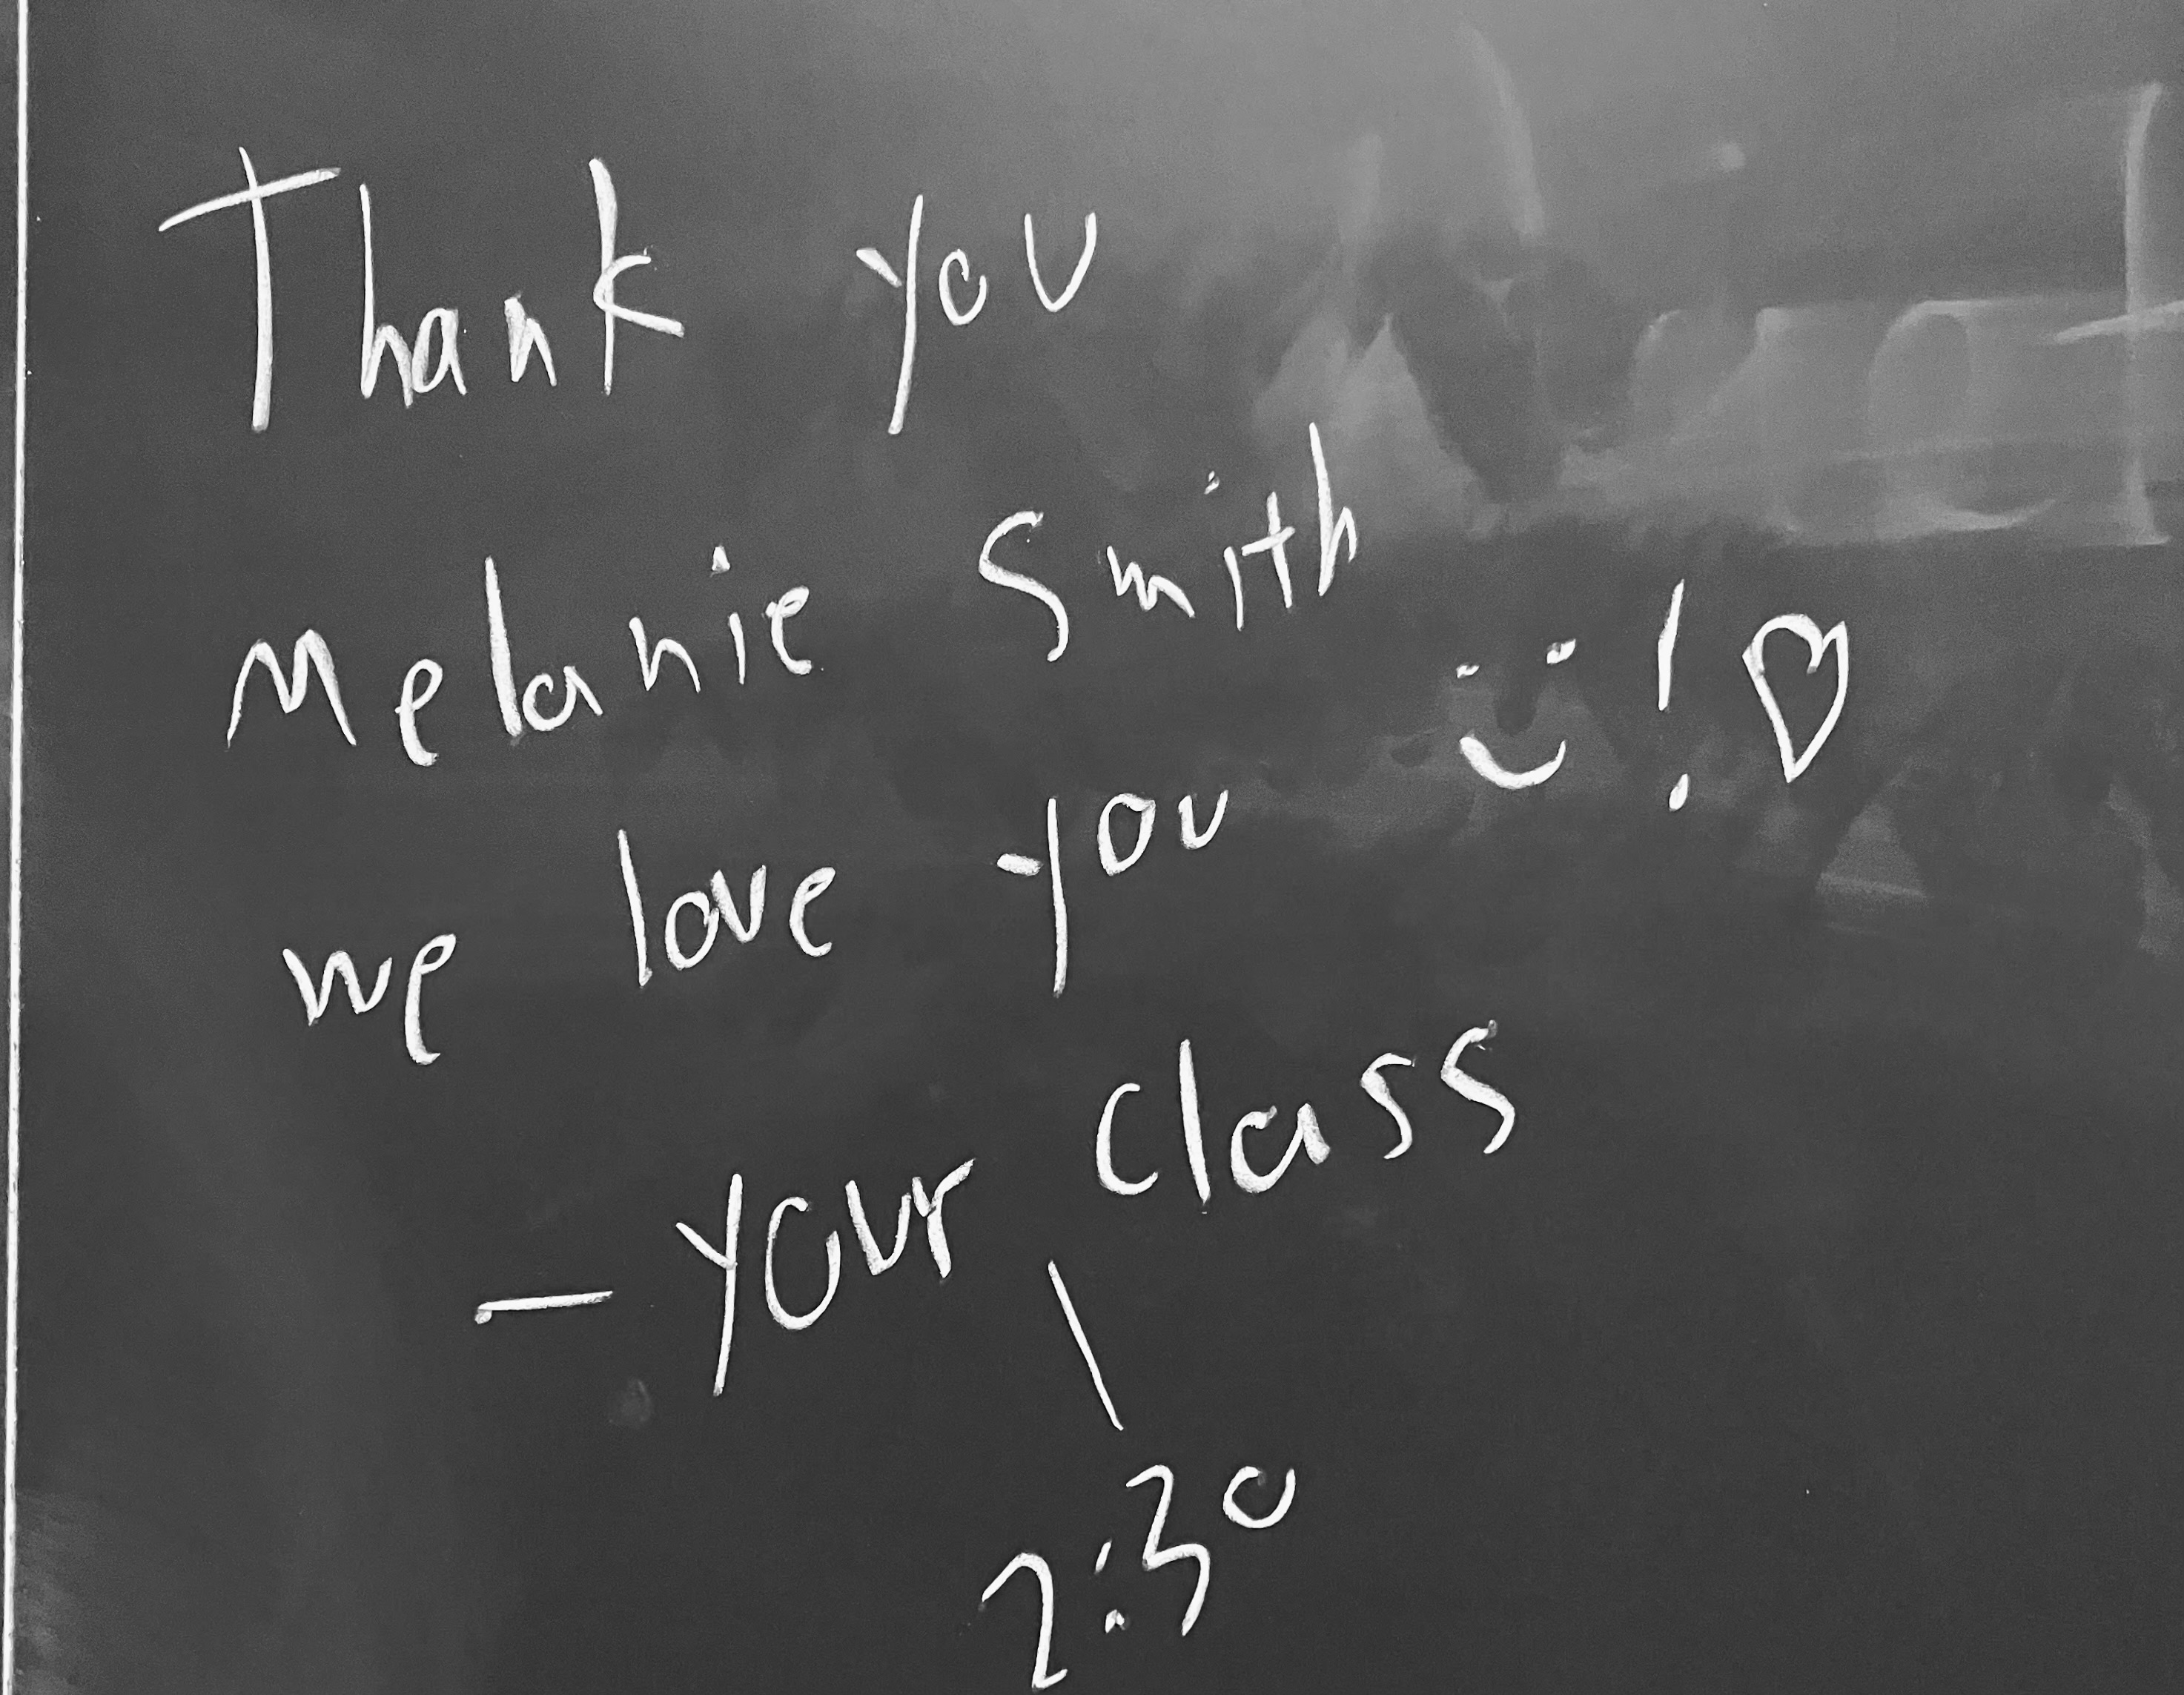 Thank you
Melanie Smith
we love you :)!♡
- your class
\
2:30